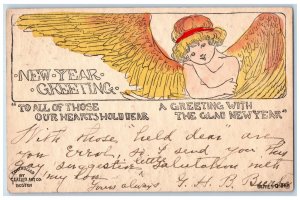 NEW·YEAR
GREETING
"TO ALL OF THOSE
OUR HEARTS HOLD DEAR
A GREETING WITH
THE GLAD NEW YEAR"
BY
BOSTON
With those, "held dear" are
you Errol, so I send you this
gay, suggestive little salutation with
my love
Yours always G. H. B.